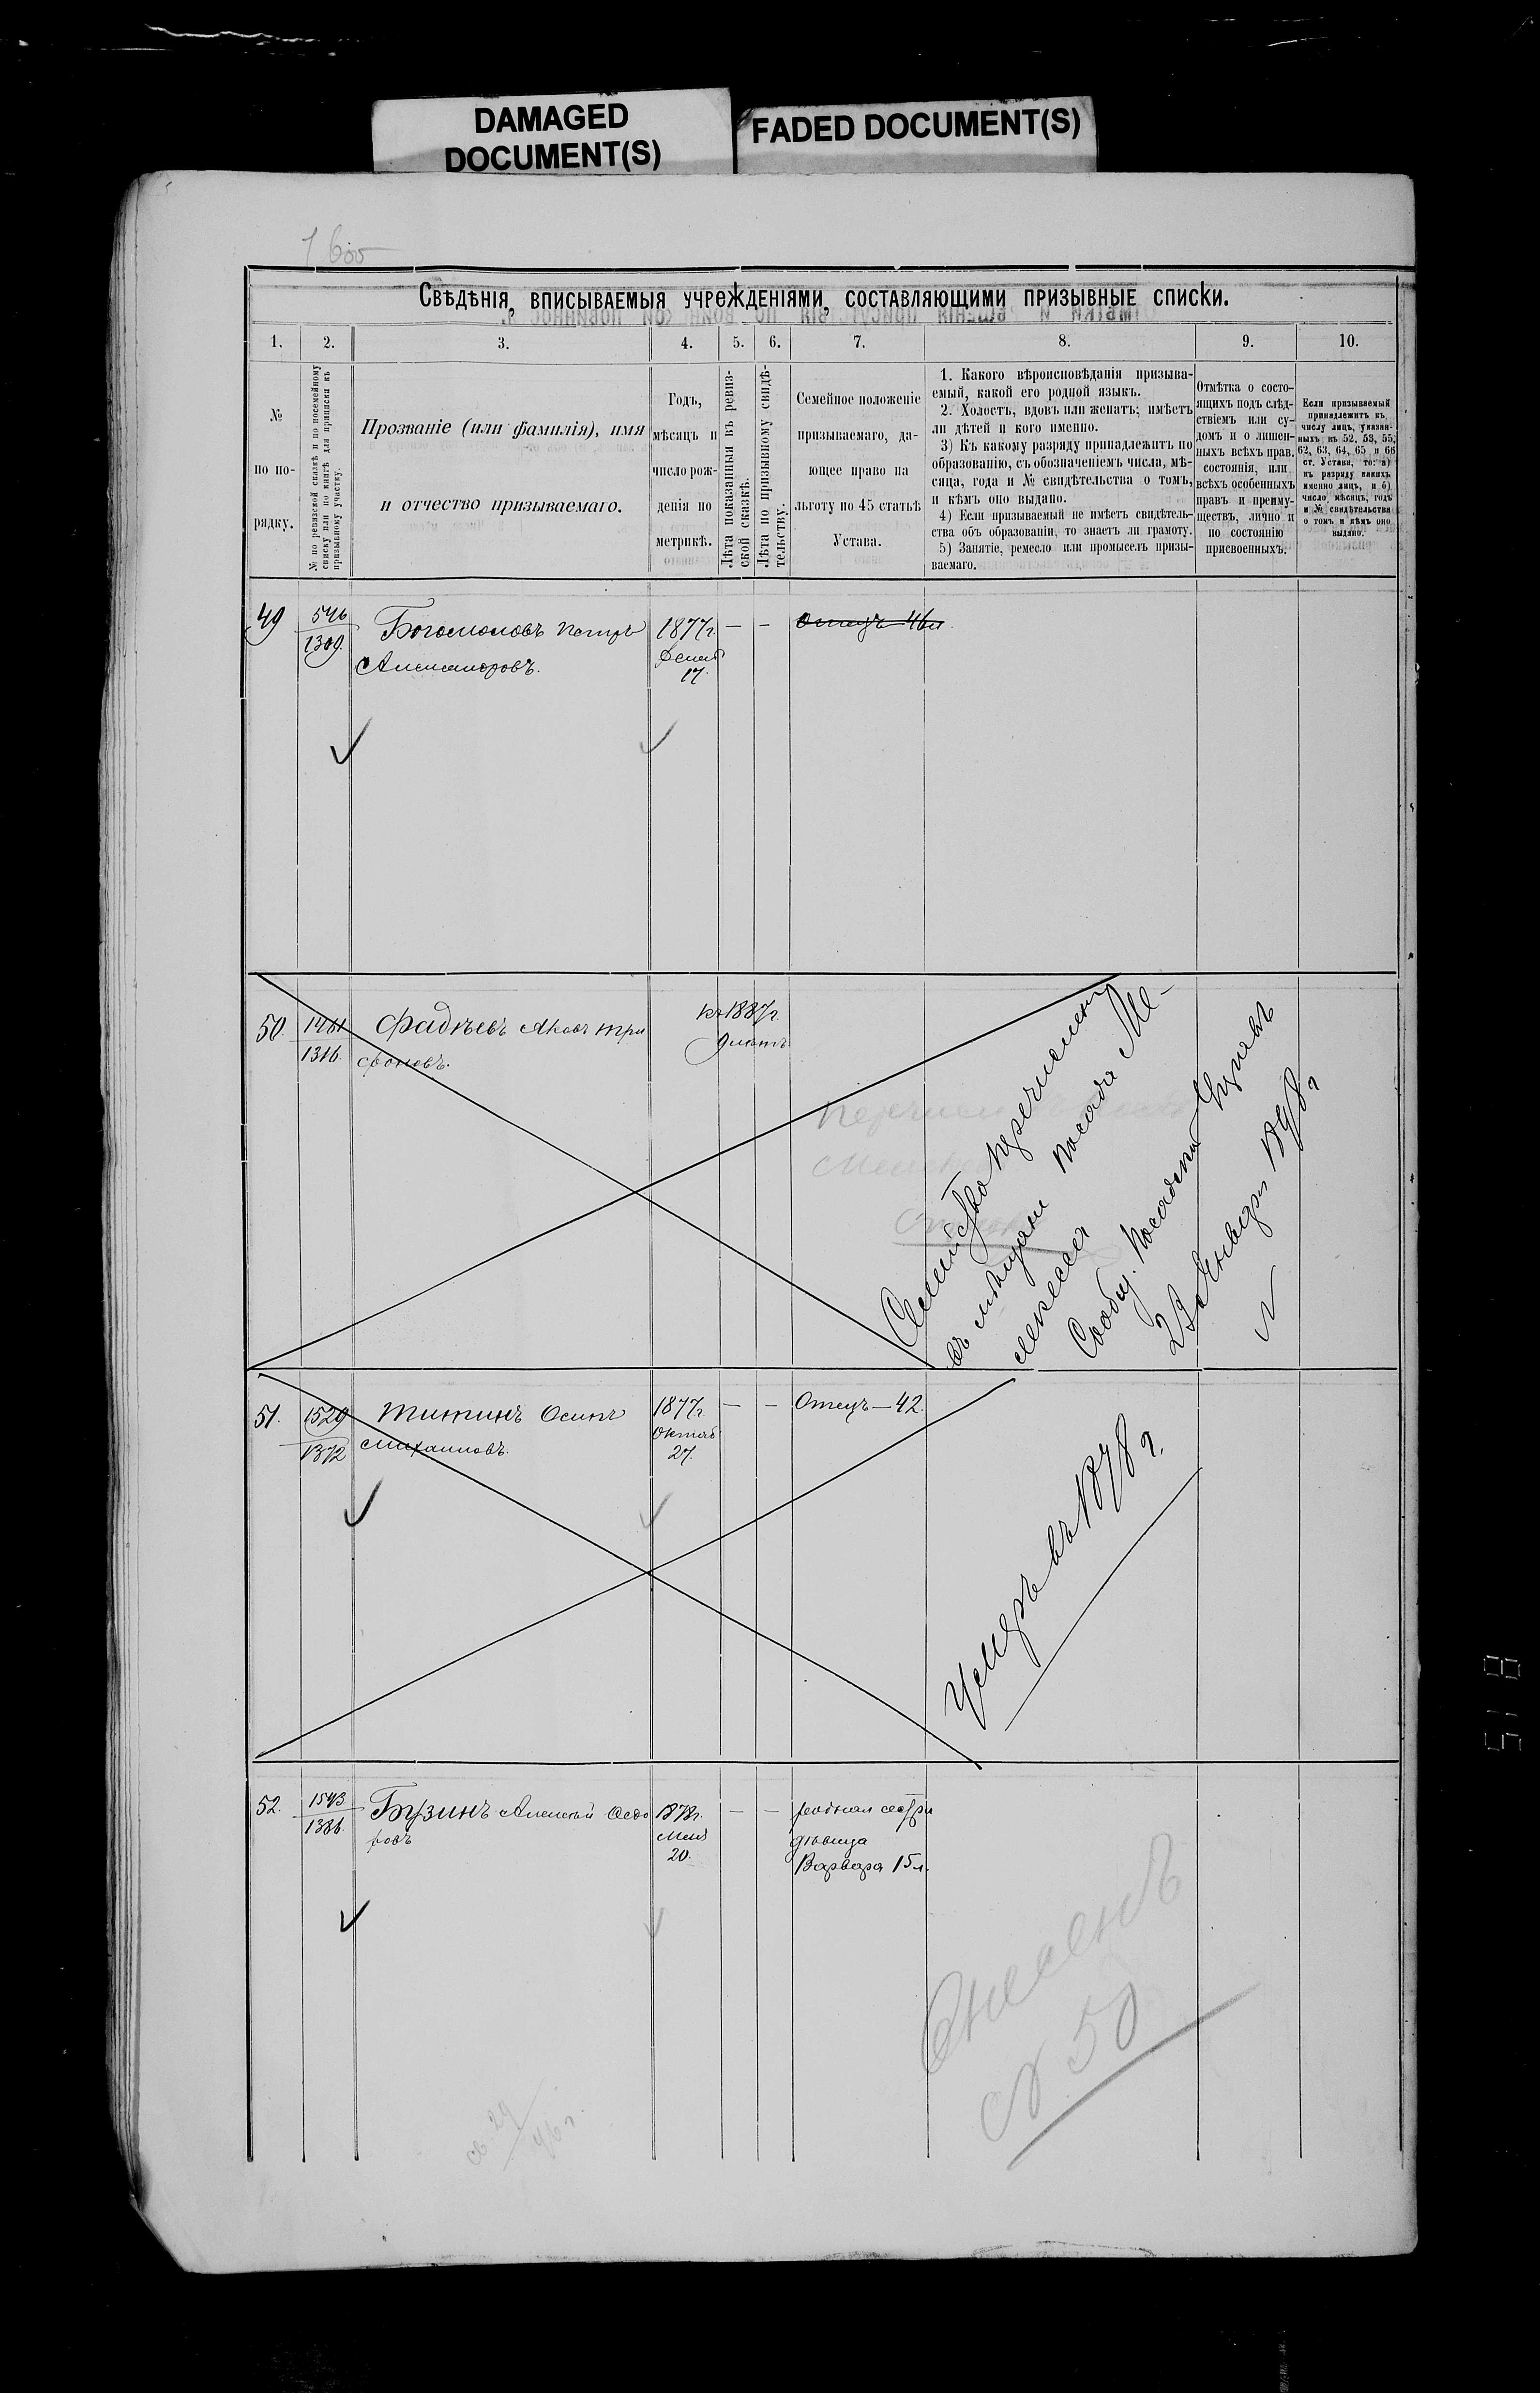 DAMAGED
DOCUMENT(S)
FADED DOCUMENT(S)
Свѣдѣнія, вписываемыя учрежденіями, составляющими призывные списки.
1. 2. 3. 4. 5. 6. 7. 8. 9. 10.
№
по по-
рядку.
№ по ревизской сказкѣ и по посемейному
списку или по книгѣ для приписки къ
призывному участку.
Прозваніе (или фамилія), имя
и отчество призываемаго.
Годъ,
мѣсяцъ и
число рож-
денія по
метрикѣ.
Лѣта показанныя въ ревиз-
ской сказкѣ.
Лѣта по призывному свидѣ-
тельству.
Семейное положеніе
призываемаго, да-
ющее право на
льготу по 45 статьѣ
Устава.
1. Какого вѣроисповѣданія призыва-
емый, какой его родной языкъ.
2. Холостъ, вдовъ или женатъ; имѣетъ
ли дѣтей и кого именно.
3) Къ какому разряду принадлежитъ по
образованію, съ обозначеніемъ числа, мѣ-
сяца, года и № свидѣтельства о томъ,
и кѣмъ оно выдано.
4) Если призываемый не имѣетъ свидѣтель-
ства объ образованіи, то знаетъ ли грамоту.
5) Занятіе, ремесло или промыселъ призы-
ваемаго.
Отмѣтка о состо-
ящихъ подъ слѣд-
ствіемъ или су-
домъ и о лишен-
ныхъ всѣхъ правъ
состоянія, или
всѣхъ особенныхъ
правъ и преиму-
ществъ, лично и
по состоянію
присвоенныхъ.
Если призываемый
принадлежитъ къ
числу лицъ, указан-
ныхъ въ 52, 53, 55,
62, 63, 64, 65 и 66
ст. Устава, то: а)
къ разряду какихъ
именно лицъ, и б)
число, мѣсяцъ, годъ
и № свидѣтельства
о томъ и кѣмъ оно
выдано.
49 546 Богомоловъ Петръ 1877г. — — Отецъ 46л.
1309. Александровъ.
17.
50. 1461 Фадѣевъ Яковъ Три къ 1887г.
1316. фоновъ. 9 лѣтъ
Семейство перечислено
въ мѣщане посада Ме-
лекесса
Сообщ. Посадской Управы
Января 1898г
51. 1529 Титинъ Осипъ 1877г. — — Отецъ — 42.
1372 Михаиловъ. Октяб
27.
Умеръ въ 1878 г.
52. 1543 Бузинъ Алексѣй Ѳедо 1878г. — — родная сестра
1386. ровъ Мая дѣвица
20. Варвара 15 л.
№ 50
518